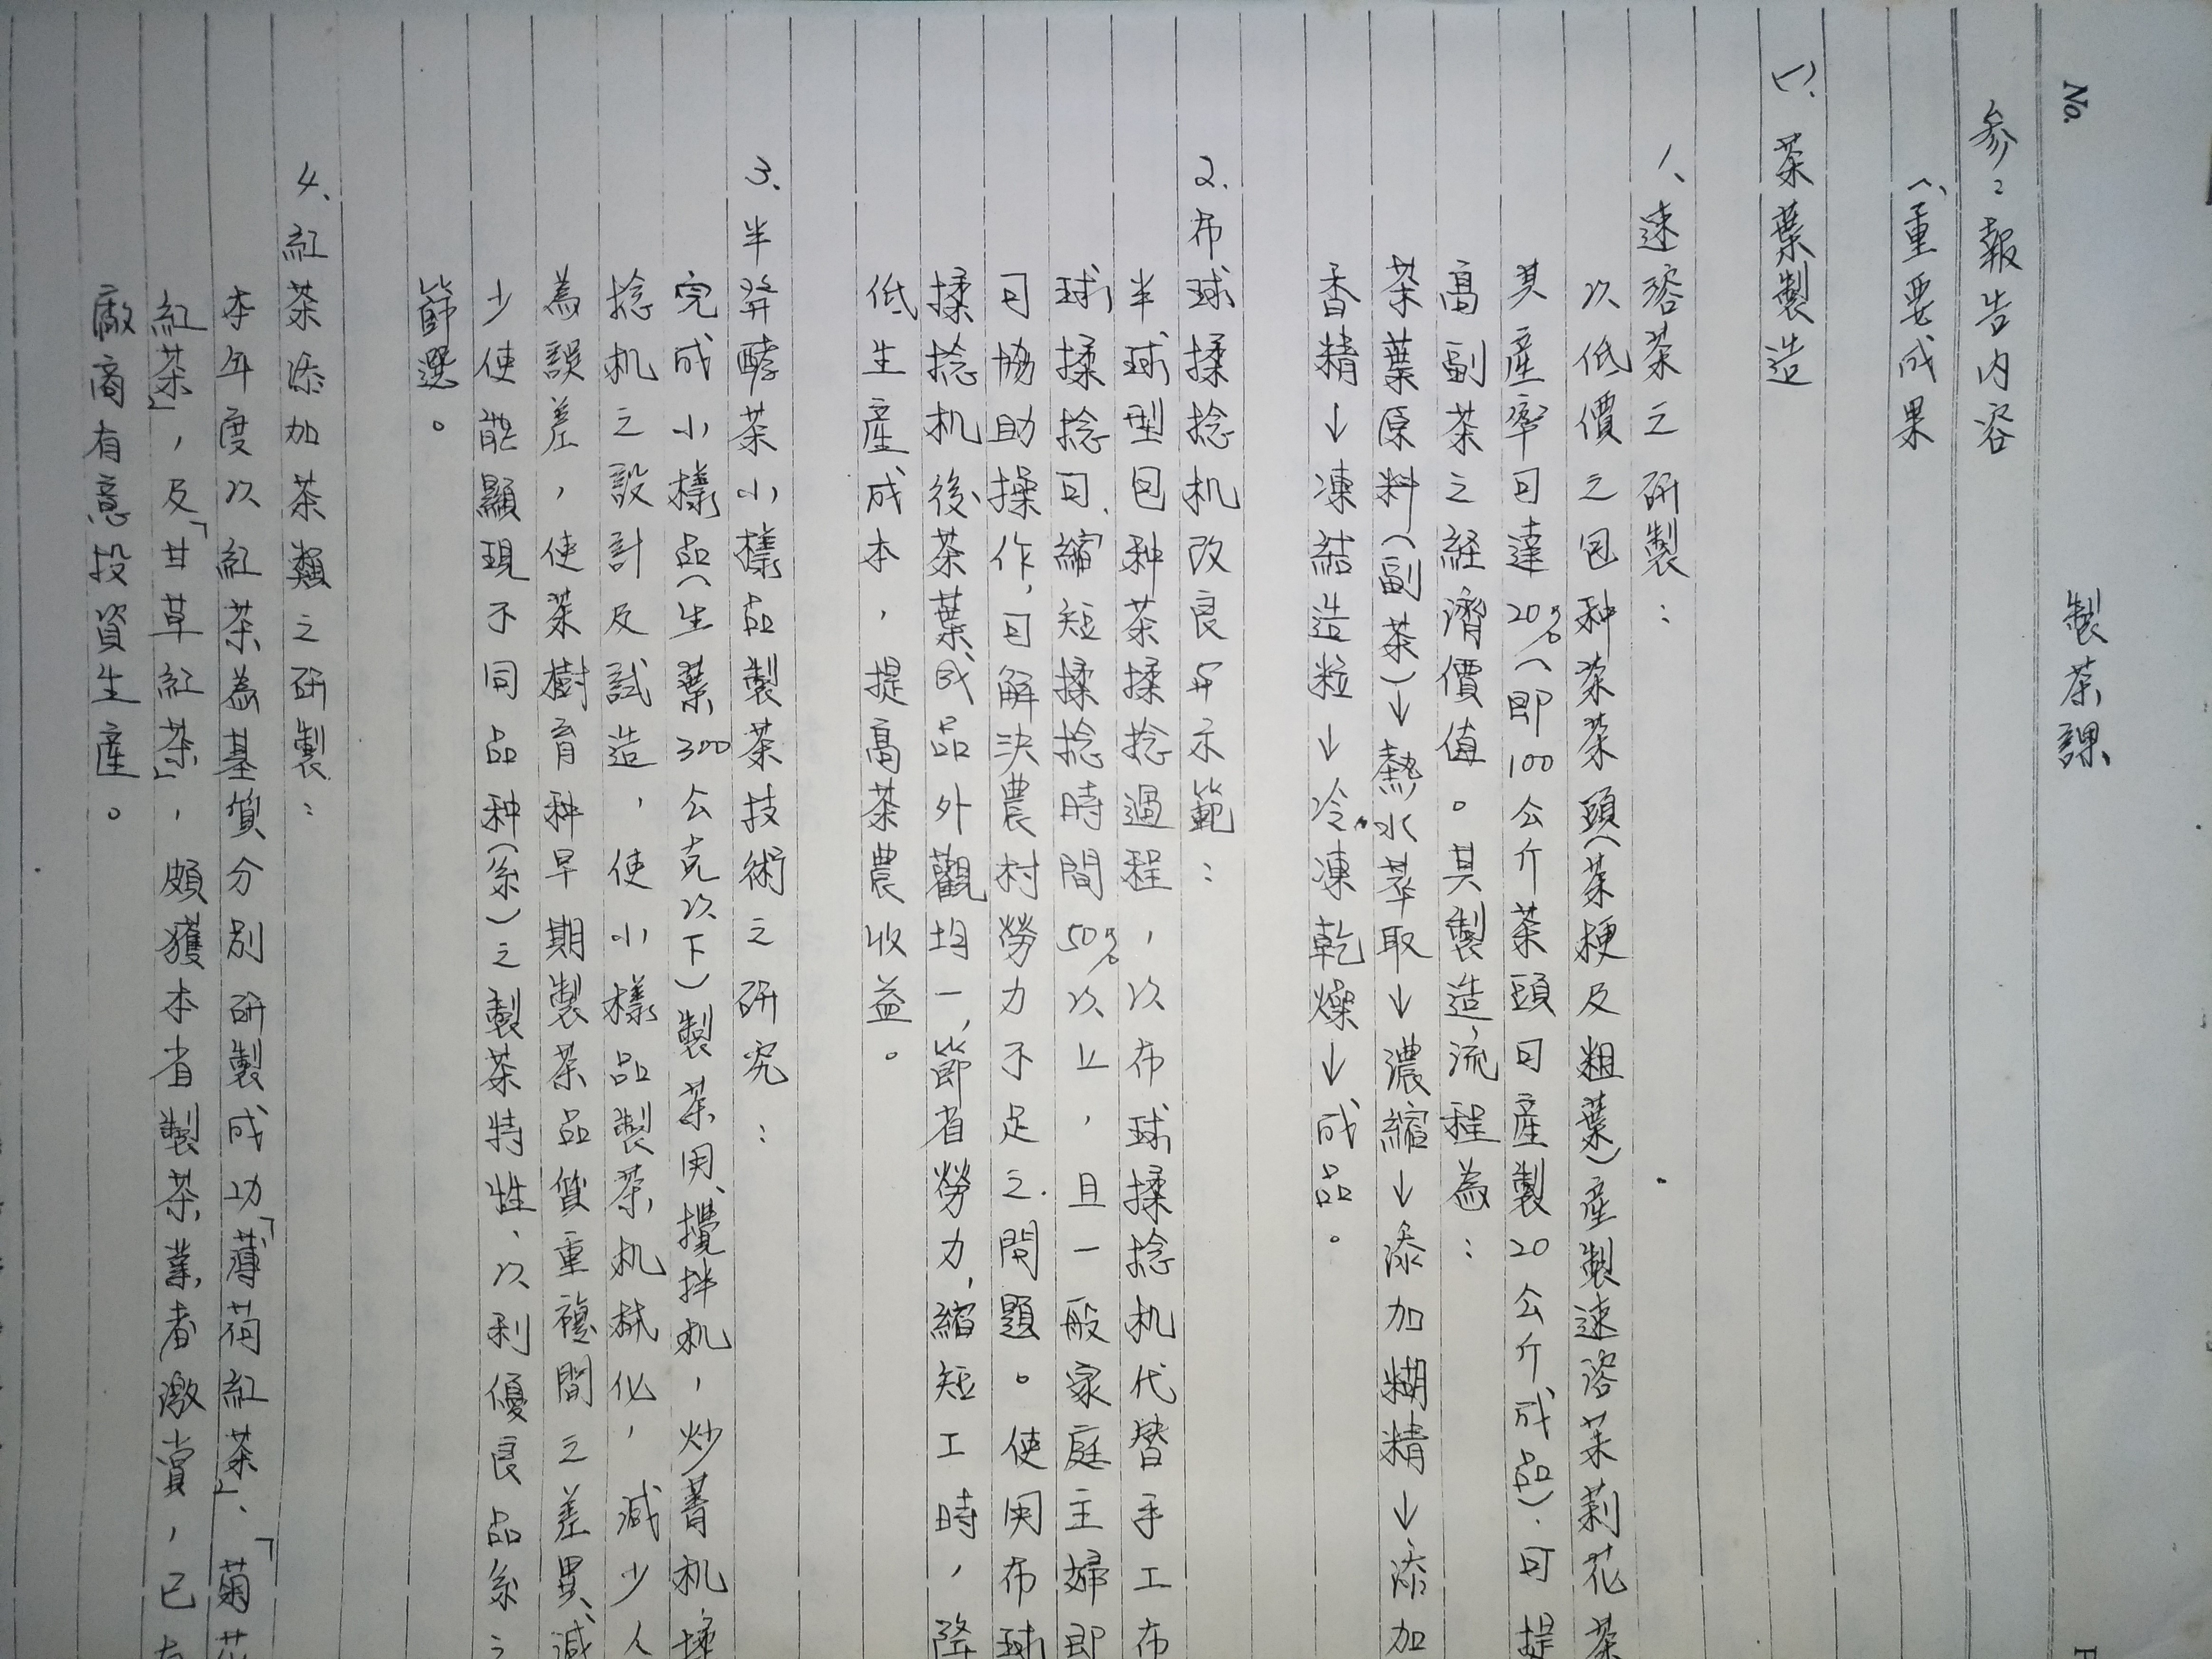 No.
製茶課
参、報告內容
一、重要成果
(一)、茶葉製造
1、速溶茶之研製：
以低價之包种茶茶頭(茶梗及粗葉)產製速溶茉莉花茶
其產率可達20%(即100公斤茶頭可產製20公斤成品)，可提
高副茶之経濟價值。其製造流程為：
茶葉原料(副茶)→熱水萃取→濃縮→添加糊精→添加
香精→凍結造粒→冷凍乾燥→成品。
2、布球揉捻机改良与示範：
半球型包种茶揉捻過程，以布球揉捻机代替手工布
球揉捻可縮短揉捻時間50%以上，且一般家庭主婦即
可協助操作，可解決農村勞力不足之問題。使用布球
揉捻机後茶葉成品外觀均一，節省勞力，縮短工時，降
低生產成本，提高茶農收益。
3、半醱酵茶小樣品製茶技術之研究：
完成小樣品(生葉300公克以下)製茶用攪拌机，炒菁机、揉
捻机之設計及試造，使小樣品製茶机械化，減少人
為誤差，使茶樹育种早期製茶品質重複間之差異減
少使能顯現不同品种(系)之製茶特性，以利優良品系之
篩選。
4、紅茶添加茶類之研製：
本年度以紅茶為基質分別研製成功「薄荷紅茶」、「菊花
紅茶」，及「甘草紅茶」，頗獲本省製茶業者激賞，已有
廠商有意投資生產。